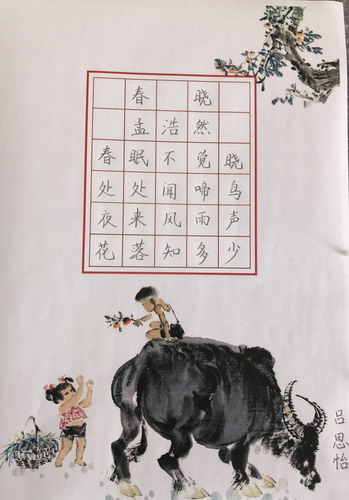 春晓
孟浩然
春眠不觉晓
处处闻啼鸟
夜来风雨声
花落知多少
吕思怡